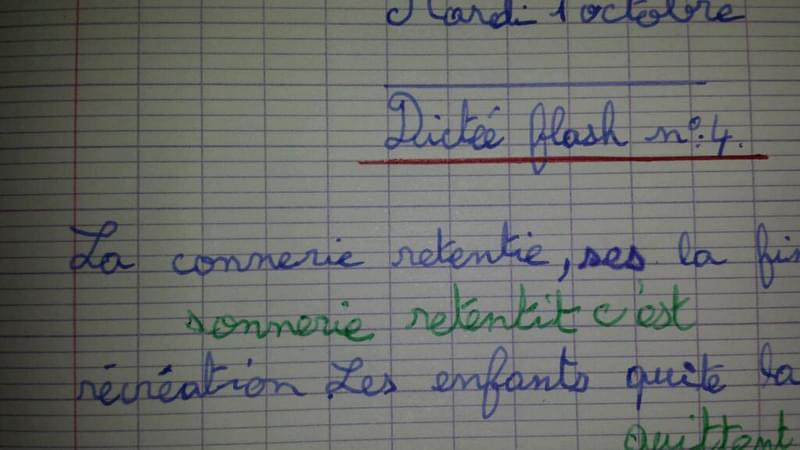 Mardi 1 octobre
Dictée flash n°4.
La connerie retentie, ses la fin
sonnerie retentit c'est
récréation Les enfants quite la
quittent